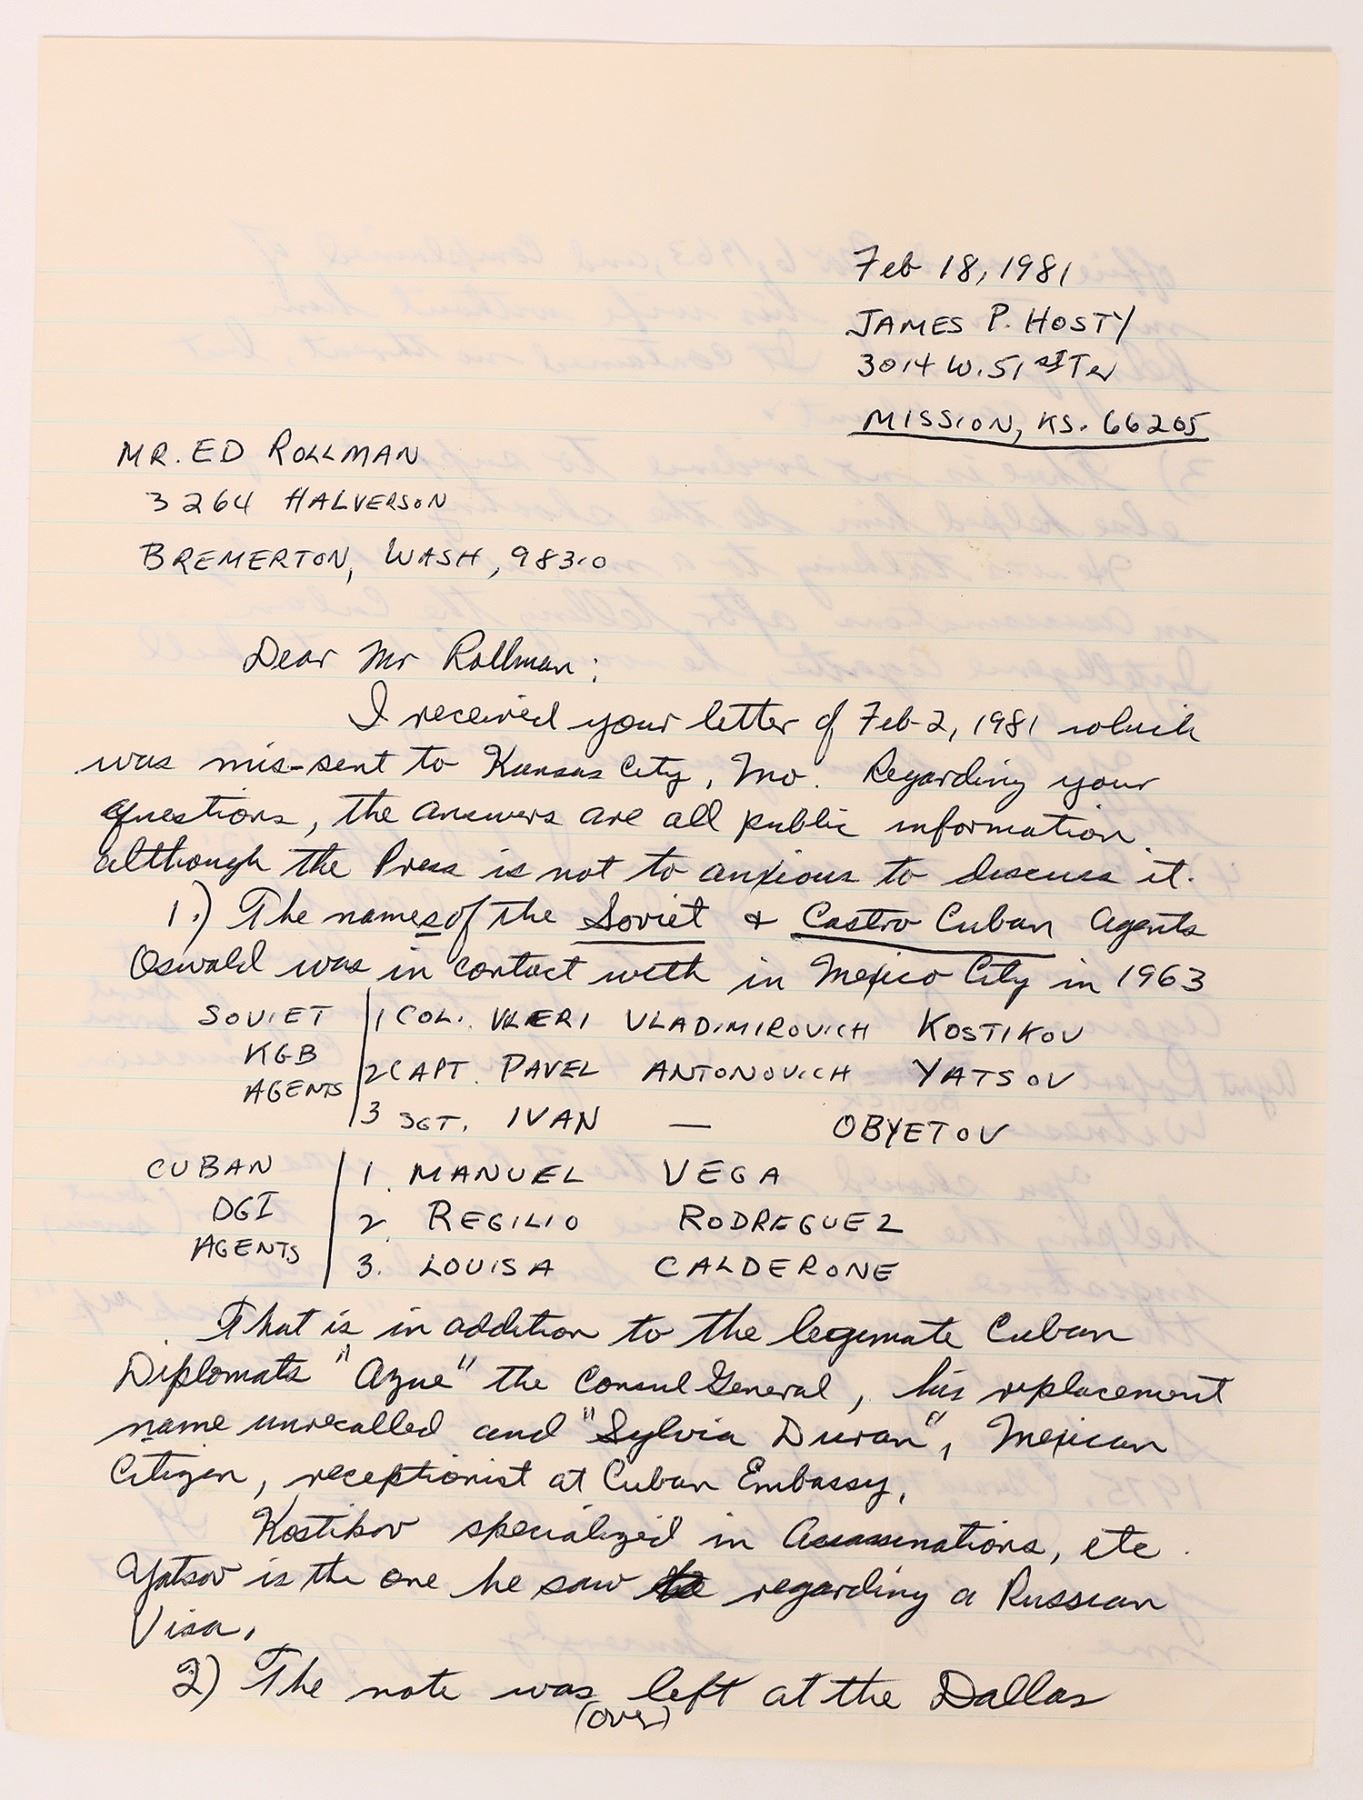 Feb 18, 1981
JAMES P. HOSTY
3014 W. 51st Ter
MISSION, KS. 66205
MR. ED ROLLMAN
3264 HALVERSON
BREMERTON, WASH, 98310
Dear Mr Rollman:
I received your letter of Feb-2, 1981 which
was mis-sent to Kansas City, Mo. Regarding your
questions, the answers are all public information.
although the Press is not to anxious to discuss it.
1.) The names of the Soviet & Castro Cuban agents
Oswald was in contact with in Mexico City in 1963
SOVIET KGB AGENTS
1 COL. VALERI VLADIMIROVICH KOSTIKOV
2 CAPT. PAVEL ANTONOVICH YATSOV
3 SGT. IVAN — OBYETOV
CUBAN DGI AGENTS
1. MANUEL VEGA
2. REGILIO RODREGUEZ
3. LOUISA CALDERONE
That is in addition to the legimate Cuban
Diplomats "Azue" the Consul General, his replacement
name unrecalled and "Sylvia Duran", Mexican
Citizen, receptionist at Cuban Embassy,
Kostikov specialized in Assassinations, etc.
Yatsov is the one he saw regarding a Russian
Visa.
2) The note was left at the Dallas
(over)